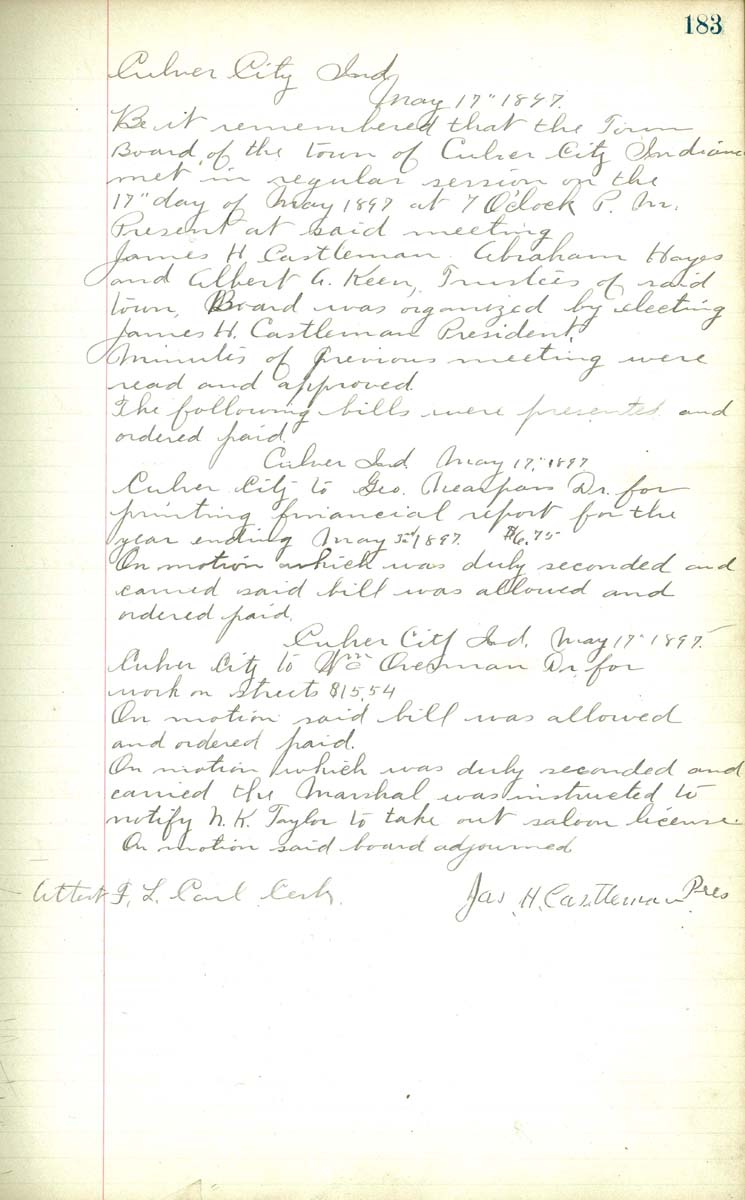 183
Culver City Ind
May 17" 1897.
Be it remembered that the Town
Board, of the town of Culver City Indiana
met in regular session on the
17" day of May 1897 at 7 O'clock P. M.
Present at said meeting
James H. Castleman. Abraham Hayes
and Albert A. Keen, Trustees of said
town, Board was organized by electing
James H. Castleman President.
Minutes of previous meeting were
read and approved.
The following bills were presented and
ordered paid.
Culver Ind. May 17," 1897
Culver City to Geo. Dr. for
printing financial report for the
year ending May 1897. $6.75
On motion which was duly seconded and
carried said bill was allowed and
ordered paid.
Culver City Ind. May 17" 1897.
Culver City to Wm Overman Dr. for
work on streets $15.54
On motion said bill was allowed
and ordered paid.
On motion which was duly seconded and
carried the Marshal was instructed to
notify N. K. Taylor to take out saloon license.
On motion said board adjourned
Attest F. L. Carl Cerk.
Jas. H. Castleman Pres